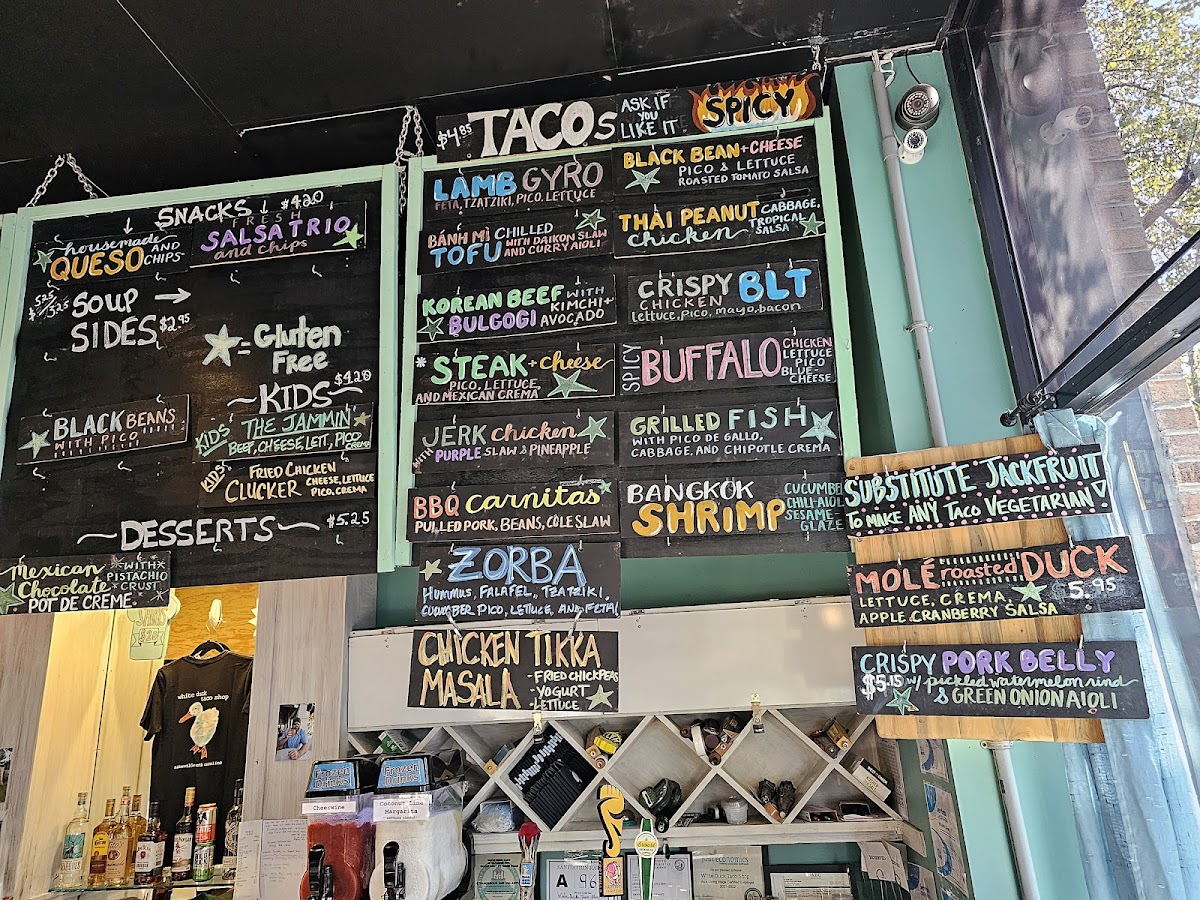 SNACKS $4.20
housemade
QUESO AND CHIPS
FRESH
SALSA TRIO
and chips
SOUP
SIDES $2.95
= Gluten
Free
~KIDS~ $4.20
BLACK BEANS
WITH PICO
KIDS THE JAMMIN
BEEF, CHEESE, LETT, PICO
CREMA
KIDS FRIED CHICKEN
CLUCKER CHEESE, LETTUCE
PICO, CREMA
~DESSERTS~ $5.25
Mexican
Chocolate
WITH
PISTACHIO
CRUST
POT DE CREME
$4.95 TACOS
ASK IF
YOU
LIKE IT
SPICY
LAMB GYRO
FETA, TZATZIKI, PICO, LETTUCE
BÁNH MÌ CHILLED
TOFU WITH DAIKON SLAW
AND CURRY AIOLI
KOREAN BEEF WITH
BULGOGI KIMCHI+
AVOCADO
* STEAK + cheese
PICO, LETTUCE
AND MEXICAN CREMA
JERK chicken
WITH PURPLE SLAW & PINEAPPLE
BBQ CARNITAS
PULLED PORK, BEANS, COLE SLAW
ZORBA
HUMMUS, FALAFEL, TZATZIKI,
CUCUMBER PICO, LETTUCE, AND FETA
CHICKEN TIKKA
MASALA
- FRIED CHICKPEAS
- YOGURT
- LETTUCE
BLACK BEAN + CHEESE
PICO & LETTUCE
ROASTED TOMATO SALSA
THAI PEANUT
chicken
CABBAGE,
TROPICAL
SALSA
CRISPY BLT
CHICKEN
lettuce, pico, mayo, bacon
SPICY BUFFALO
CHICKEN
LETTUCE
PICO
BLUE-
CHEESE
GRILLED FISH
WITH PICO DE GALLO,
CABBAGE, AND CHIPOTLE CREMA
BANGKOK
SHRIMP
CUCUMBER
CHILI-AIOLI
SESAME-
GLAZE
SUBSTITUTE JACKFRUIT
TO MAKE ANY TACO VEGETARIAN!
MOLÉ roasted DUCK
5.95
LETTUCE, CREMA,
APPLE CRANBERRY SALSA
CRISPY PORK BELLY
$5.15 w/ pickled watermelon rind
& GREEN ONION AIOLI
white duck taco shop
Frozen
Drinks
Cheerwine
Frozen
Drinks
Coconut Lime
Margarita
A 96
just economics
White Duck Taco Shop